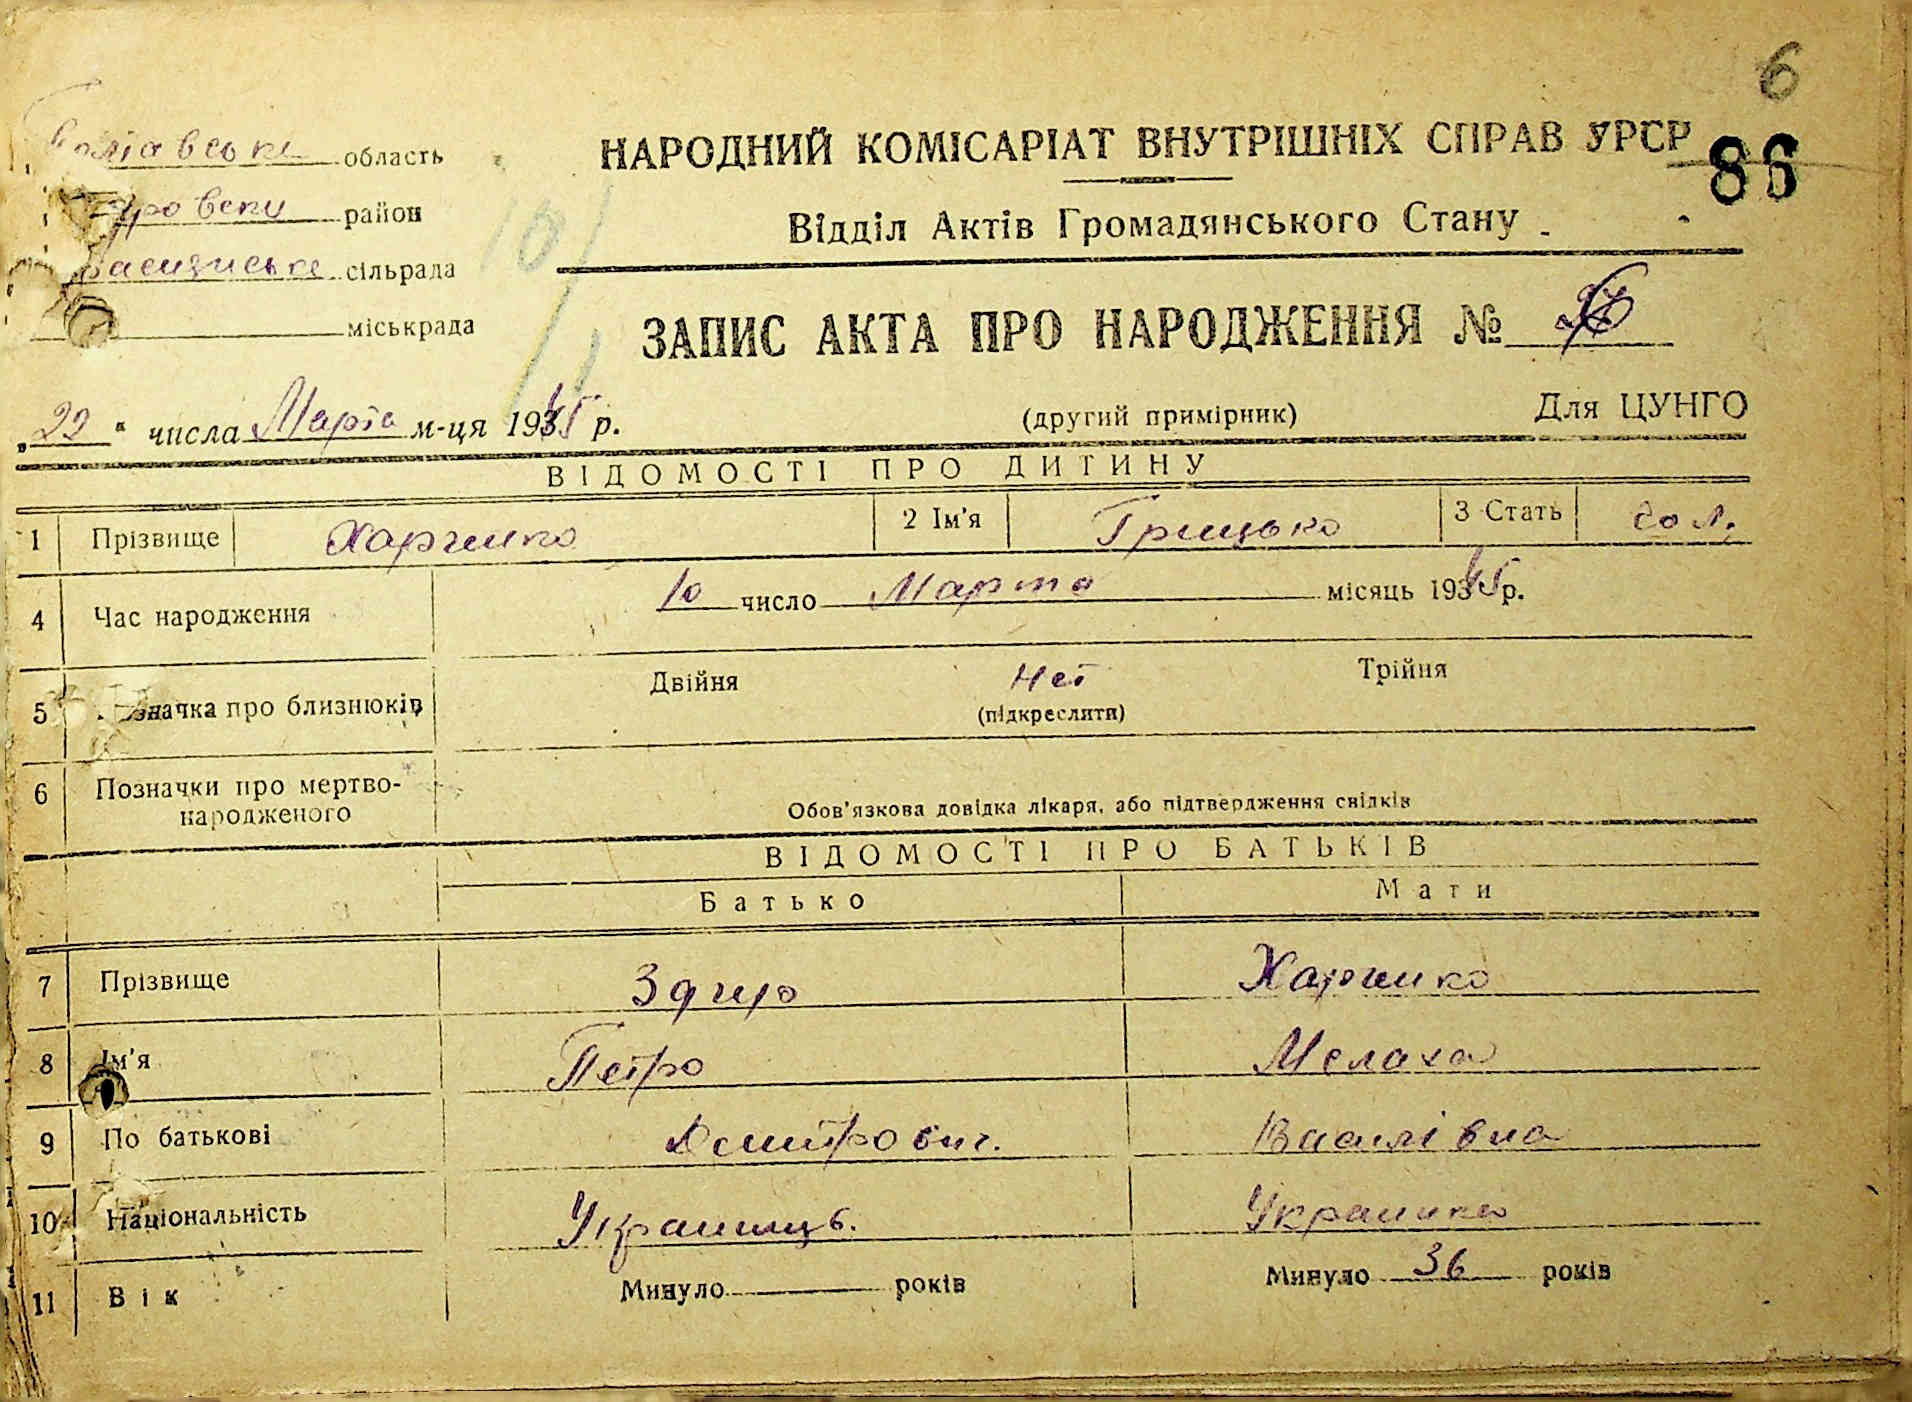 6
НАРОДНИЙ КОМІСАРІАТ ВНУТРІШНІХ СПРАВ УРСР
86
область
район
сільрада
міськрада
Відділ Актів Громадянського Стану
ЗАПИС АКТА ПРО НАРОДЖЕННЯ №
„22“ числа Марта м-ця 1945 р.
(другий примірник)
Для ЦУНГО
ВІДОМОСТІ ПРО ДИТИНУ
1 Прізвище Харченко 2 Ім'я Грицько 3 Стать чол.
4 Час народження 10 число Марта місяць 1945 р.
5 Позначка про близнюків Двійня Нет Трійня
(підкреслити)
6 Позначки про мертво-
народженого
Обов'язкова довідка лікаря, або підтвердження свідків
ВІДОМОСТІ ПРО БАТЬКІВ
Батько Мати
7 Прізвище Харченко
8 Ім'я Петро Мелаха
9 По батькові Дмитрович. Василівна
10 Національність Украинць. Украинка
11 Вік Минуло років Минуло 36 років